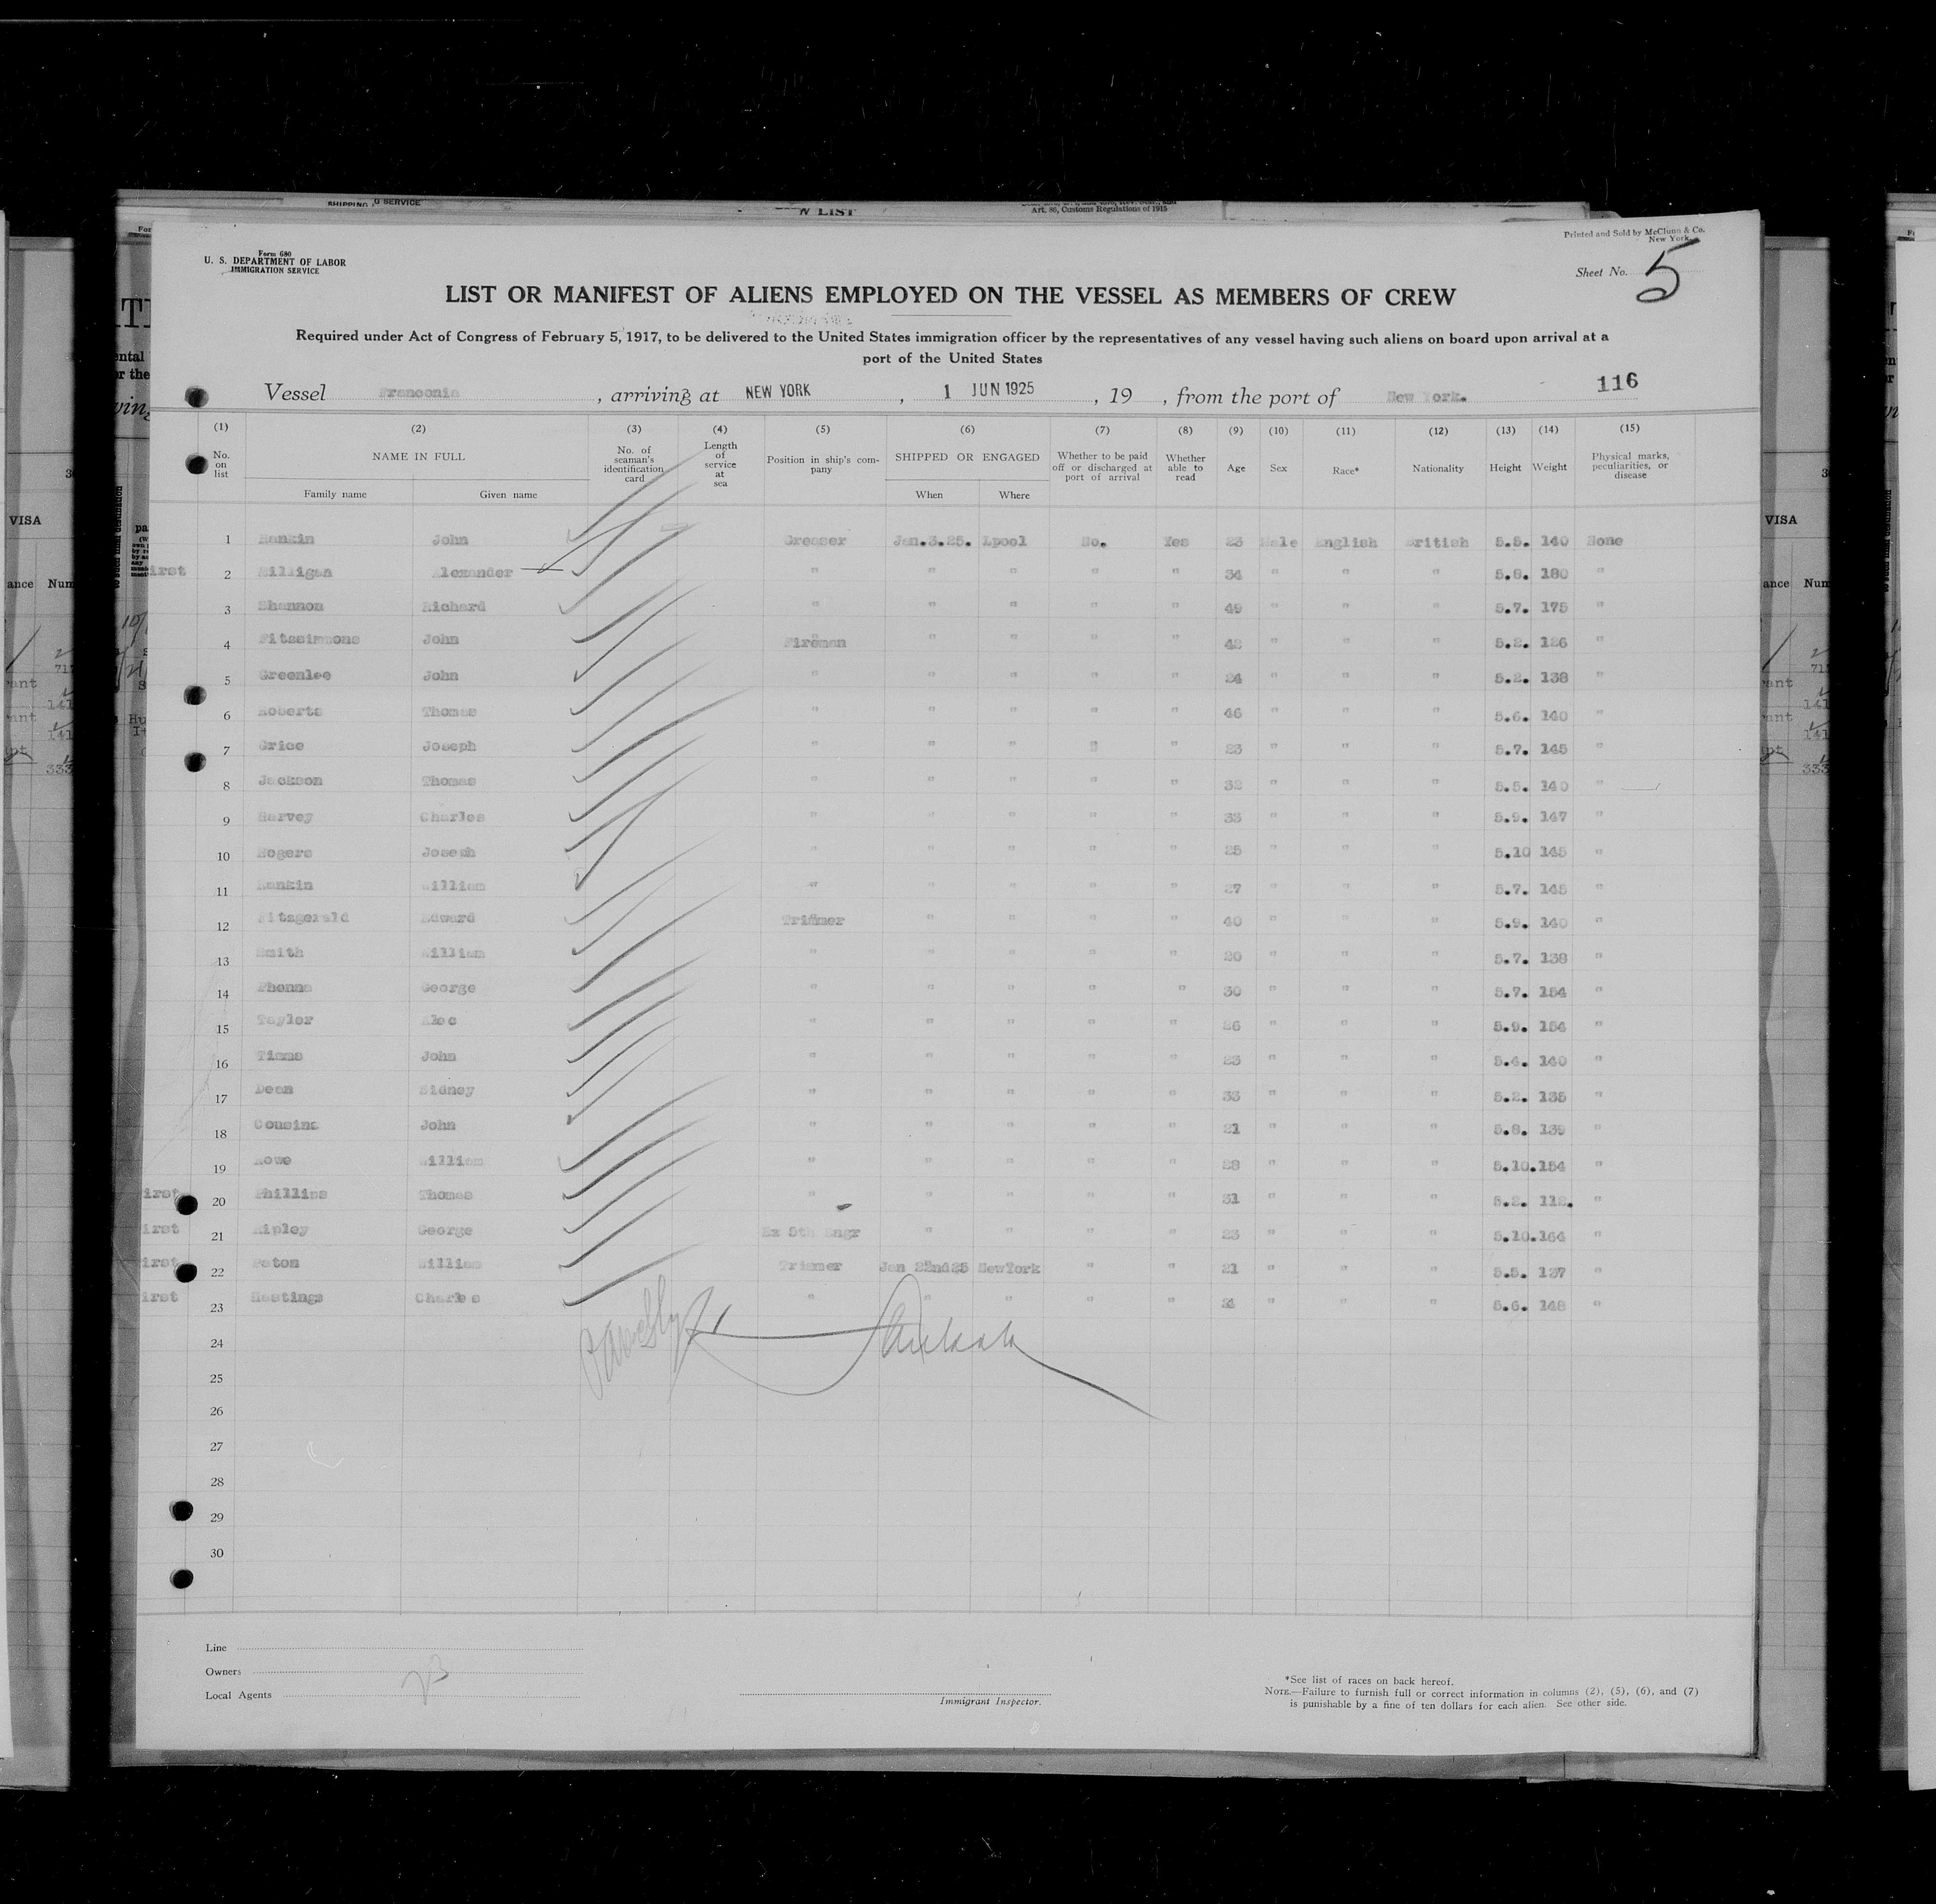 Form 680
U. S. DEPARTMENT OF LABOR
IMMIGRATION SERVICE
Printed and Sold by McClunn & Co.
New York
Sheet No. 5
LIST OR MANIFEST OF ALIENS EMPLOYED ON THE VESSEL AS MEMBERS OF CREW
Required under Act of Congress of February 5, 1917, to be delivered to the United States immigration officer by the representatives of any vessel having such aliens on board upon arrival at a
port of the United States
Vessel Franconia, arriving at NEW YORK, 1 JUN 1925, 19 , from the port of New York. 116
(1) (2) (3) (4) (5) (6) (7) (8) (9) (10) (11) (12) (13) (14) (15)
No. on list NAME IN FULL Family name Given name No. of seaman's identification card Length of service at sea Position in ship's company SHIPPED OR ENGAGED When Where Whether to be paid off or discharged at port of arrival Whether able to read Age Sex Race* Nationality Height Weight Physical marks, peculiarities, or disease
1 Rankin John Greaser Jan.3.25. Lpool No. Yes 23 Male English British 5.5. 140 None
irst 2 Milligan Alexander " " " " " 34 " " " 5.8. 180 "
3 Shannon Richard " " " " " 49 " " " 5.7. 175 "
4 Fitzsimmons John Fireman " " " " 42 " " " 5.2. 126 "
5 Greenlee John " " " " " 24 " " " 5.2. 138 "
6 Roberts Thomas " " " " " 46 " " " 5.6. 140 "
7 Grice Joseph " " " " " 23 " " " 5.7. 145 "
8 Jackson Thomas " " " " " 32 " " " 5.5. 140 "
9 Harvey Charles " " " " " 33 " " " 5.9. 147 "
10 Rogers Joseph " " " " " 25 " " " 5.10 145 "
11 Rankin William " " " " " 27 " " " 5.7. 145 "
12 Fitzgerald Edward Trimmer " " " " 40 " " " 5.9. 140 "
13 Smith William " " " " " 20 " " " 5.7. 138 "
14 George " " " " " 30 " " " 5.7. 154 "
15 Taylor Alec " " " " " 26 " " " 5.9. 154 "
16 Timms John " " " " " 23 " " " 5.4. 140 "
17 Dean Sidney " " " " " 33 " " " 5.2. 135 "
18 Cousins John " " " " " 21 " " " 5.8. 139 "
19 Rowe William " " " " " 28 " " " 5.10. 154 "
irst 20 Phillips Thomas " " " " " 31 " " " 5.2. 112. "
irst 21 Ripley George Ex 5th Engr " " " " 23 " " " 5.10. 164 "
irst 22 Paton William Trimmer Jan 22nd25 NewYork " " 21 " " " 5.5. 137 "
irst 23 Hastings Charles " " " " " " " " 5.6. 148 "
24
25
26
27
28
29
30
Line
Owners
Local Agents
23
Immigrant Inspector.
*See list of races on back hereof.
NOTE.—Failure to furnish full or correct information in columns (2), (5), (6), and (7)
is punishable by a fine of ten dollars for each alien. See other side.